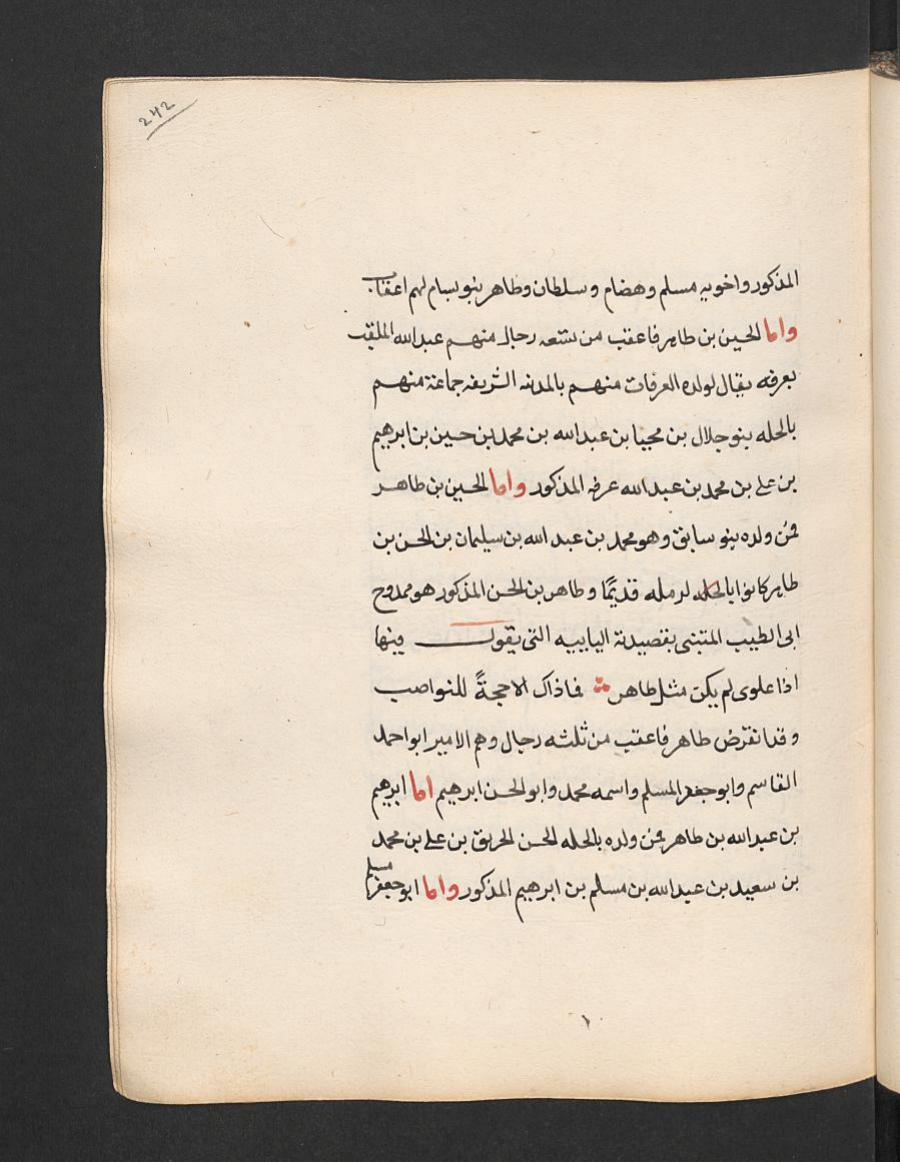 242
المذكور واخويه مسلم وهضام وسلطان وطاهر بنو بسام لهم اعقاب
واما الحسين بن طاهر فاعقب من تسعه رجال منهم عبدالله الملقب
بعرفه يقال لولده العرفات منهم بالمدنه الشريفه جماعة منهم
بالحله بنو جلال بن محيا بن عبدالله بن محمد بن حسين بن ابرهيم
بن على بن محمد بن عبدالله عرفه المذكور واما الحسين بن طاهر
فمن ولده بنو سابق وهو محمد بن عبد الله بن سليمان بن الحسن بن
طاهر كانوا بالحله لرمله قديمًا وطاهر بن الحسن المذكور هو ممدوح
ابى الطيب المتنبى بقصيدته البابيه التى يقول فيها
اذا علوى لم يكن مثل طاهر فاذاك الاحجةً للنواصب
وقد انقرض طاهر فاعقب من ثلثه رجال وهم الامير ابو احمد
القاسم وابو جعفر المسلم واسمه محمد وابو الحسن ابرهيم اما ابرهيم
بن عبدالله بن طاهر فمن ولده بالحله الحسن الحريق بن على بن محمد
بن سعيد بن عبدالله بن مسلم بن ابرهيم المذكور واما ابو جعفر مسلم